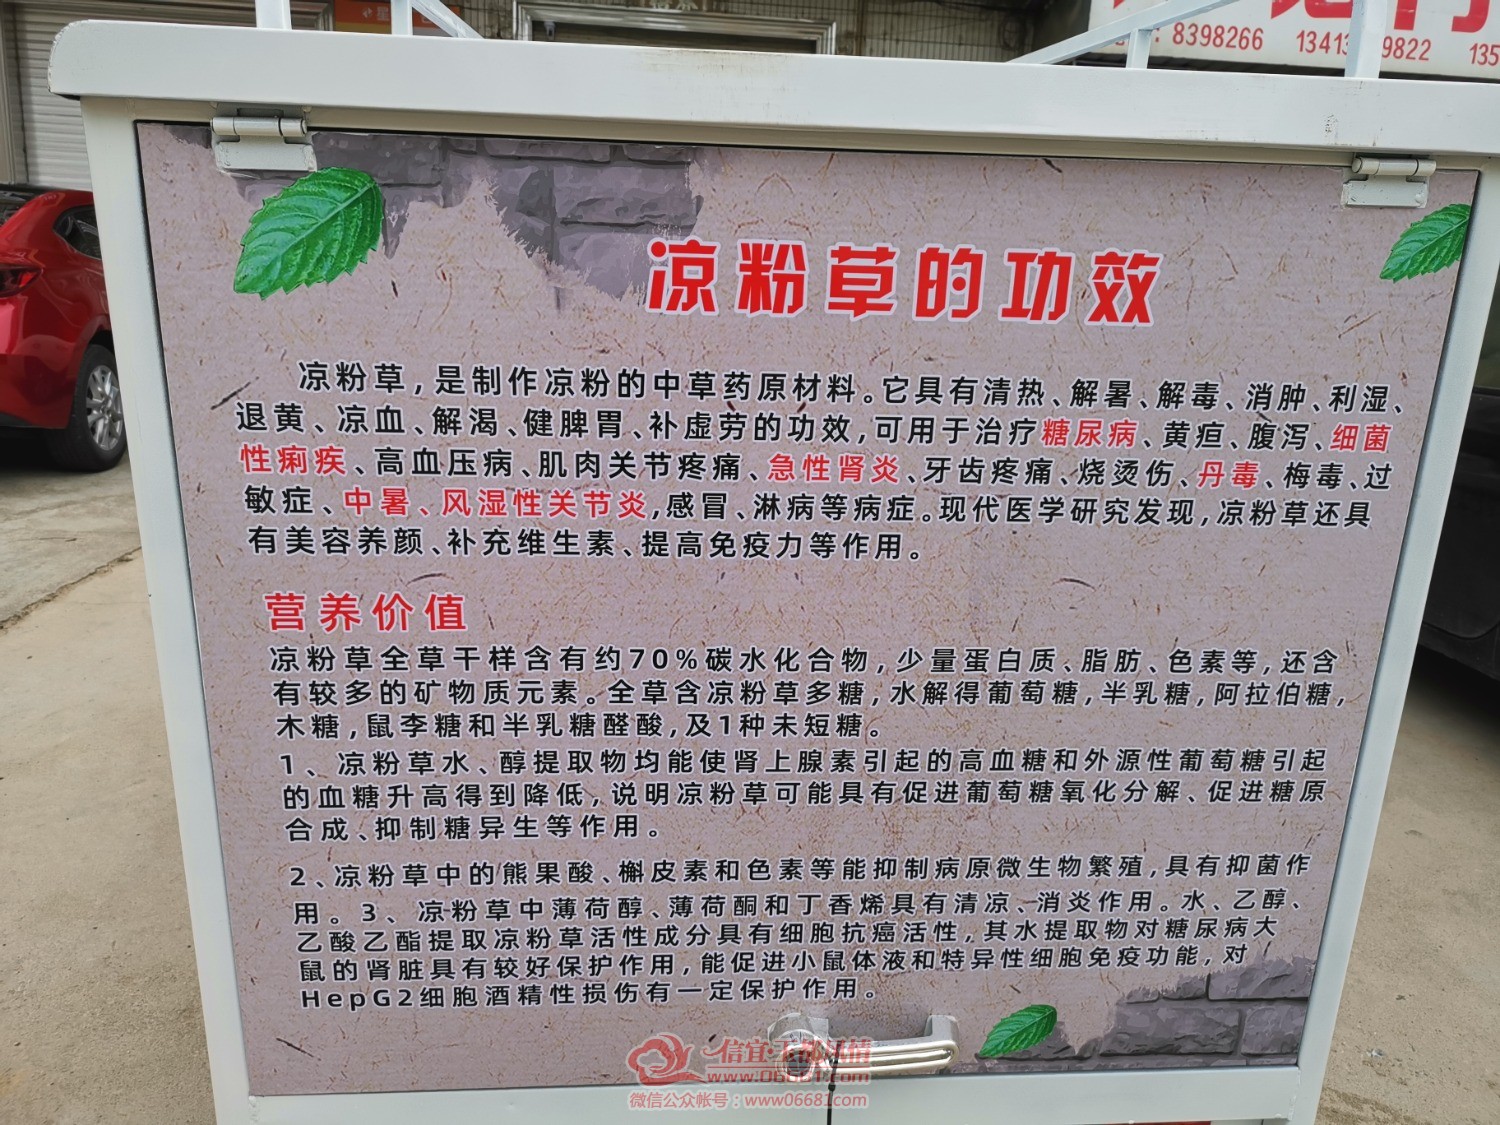 8398266
凉粉草的功效
凉粉草,是制作凉粉的中草药原材料。它具有清热、解暑、解毒、消肿、利湿、
退黄、凉血、解渴、健脾胃、补虚劳的功效,可用于治疗糖尿病、黄疸、腹泻、细菌
性痢疾、高血压病、肌肉关节疼痛、急性肾炎、牙齿疼痛、烧烫伤、丹毒、梅毒、过
敏症、中暑、风湿性关节炎,感冒、淋病等病症。现代医学研究发现,凉粉草还具
有美容养颜、补充维生素、提高免疫力等作用。
营养价值
凉粉草全草干样含有约70%碳水化合物,少量蛋白质、脂肪、色素等,还含
有较多的矿物质元素。全草含凉粉草多糖,水解得葡萄糖,半乳糖,阿拉伯糖,
木糖,鼠李糖和半乳糖醛酸,及1种未短糖。
1、凉粉草水、醇提取物均能使肾上腺素引起的高血糖和外源性葡萄糖引起
的血糖升高得到降低,说明凉粉草可能具有促进葡萄糖氧化分解、促进糖原
合成、抑制糖异生等作用。
2、凉粉草中的熊果酸、槲皮素和色素等能抑制病原微生物繁殖,具有抑菌作
用。3、凉粉草中薄荷醇、薄荷酮和丁香烯具有清凉、消炎作用。水、乙醇、
乙酸乙酯提取凉粉草活性成分具有细胞抗癌活性,其水提取物对糖尿病大
鼠的肾脏具有较好保护作用,能促进小鼠体液和特异性细胞免疫功能,对
HepG2细胞酒精性损伤有一定保护作用。
www.06681.com
微信公众帐号:www06681com